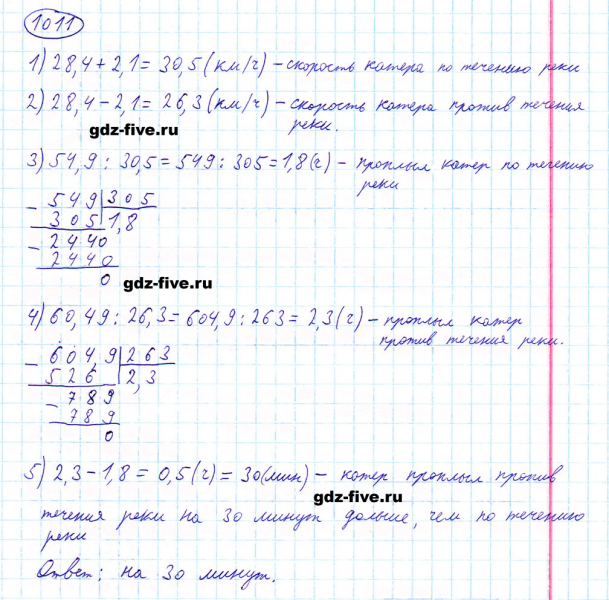 1011
1) 28,4 + 2,1 = 30,5 (км/ч) – скорость катера по течению реки
2) 28,4 – 2,1 = 26,3 (км/ч) – скорость катера против течения
реки.
gdz-five.ru
3) 54,9 : 30,5 = 549 : 305 = 1,8 (ч) – проплыл катер по течению
реки
– 549 | 305
305 | 1,8
– 2440
2440
0
gdz-five.ru
4) 60,49 : 26,3 = 604,9 : 263 = 2,3 (ч) – проплыл катер
против течения реки.
– 604,9 | 263
526 | 2,3
– 789
789
0
5) 2,3 – 1,8 = 0,5 (ч) = 30 (мин) – катер проплыл против
gdz-five.ru
течения реки на 30 минут дольше, чем по течению
реки
Ответ: на 30 минут.